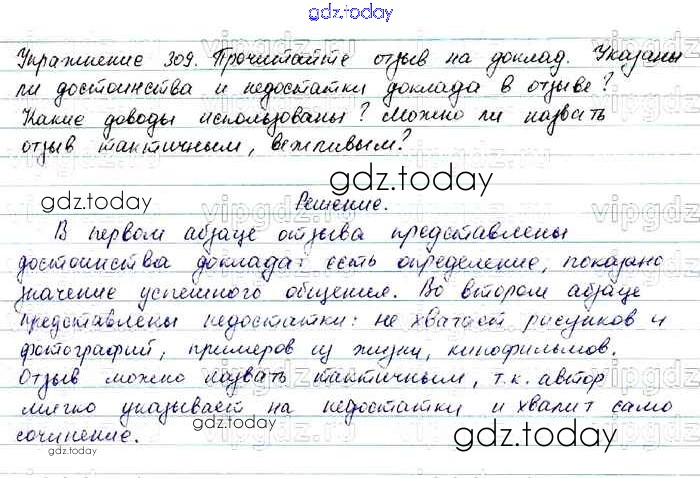 gdz.today
Упражнение 309. Прочитайте отзыв на доклад. Указаны
ли достоинства и недостатки доклада в отзыве?
Какие доводы использованы? Можно ли назвать
отзыв тактичным, вежливым?
gdz.today
gdz.today
Решение.
В первом абзаце отзыва представлены
достоинства доклада: есть определение, показано
значение успешного общения. Во втором абзаце
представлены недостатки: не хватает рисунков и
фотографий, примеров из жизни, кинофильмов.
Отзыв можно назвать тактичным, т.к. автор
мягко указывает на недостатки и хвалит само
сочинение.
gdz.today
gdz.today
gdz.today